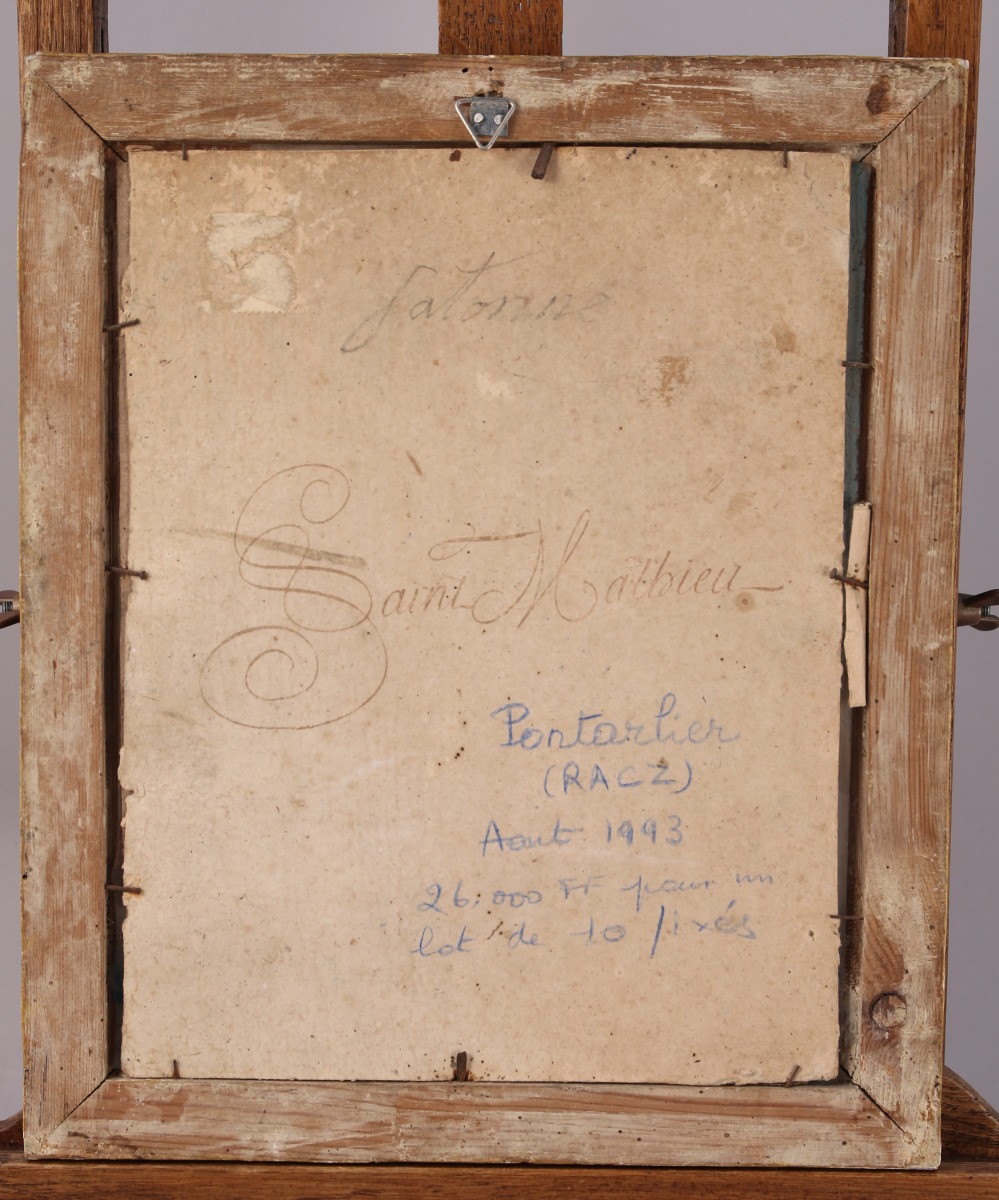 Saint Mathieu
Pontarlier
(RACZ)
Aout 1993
26.000 FF pour un
lot de 10 fixés